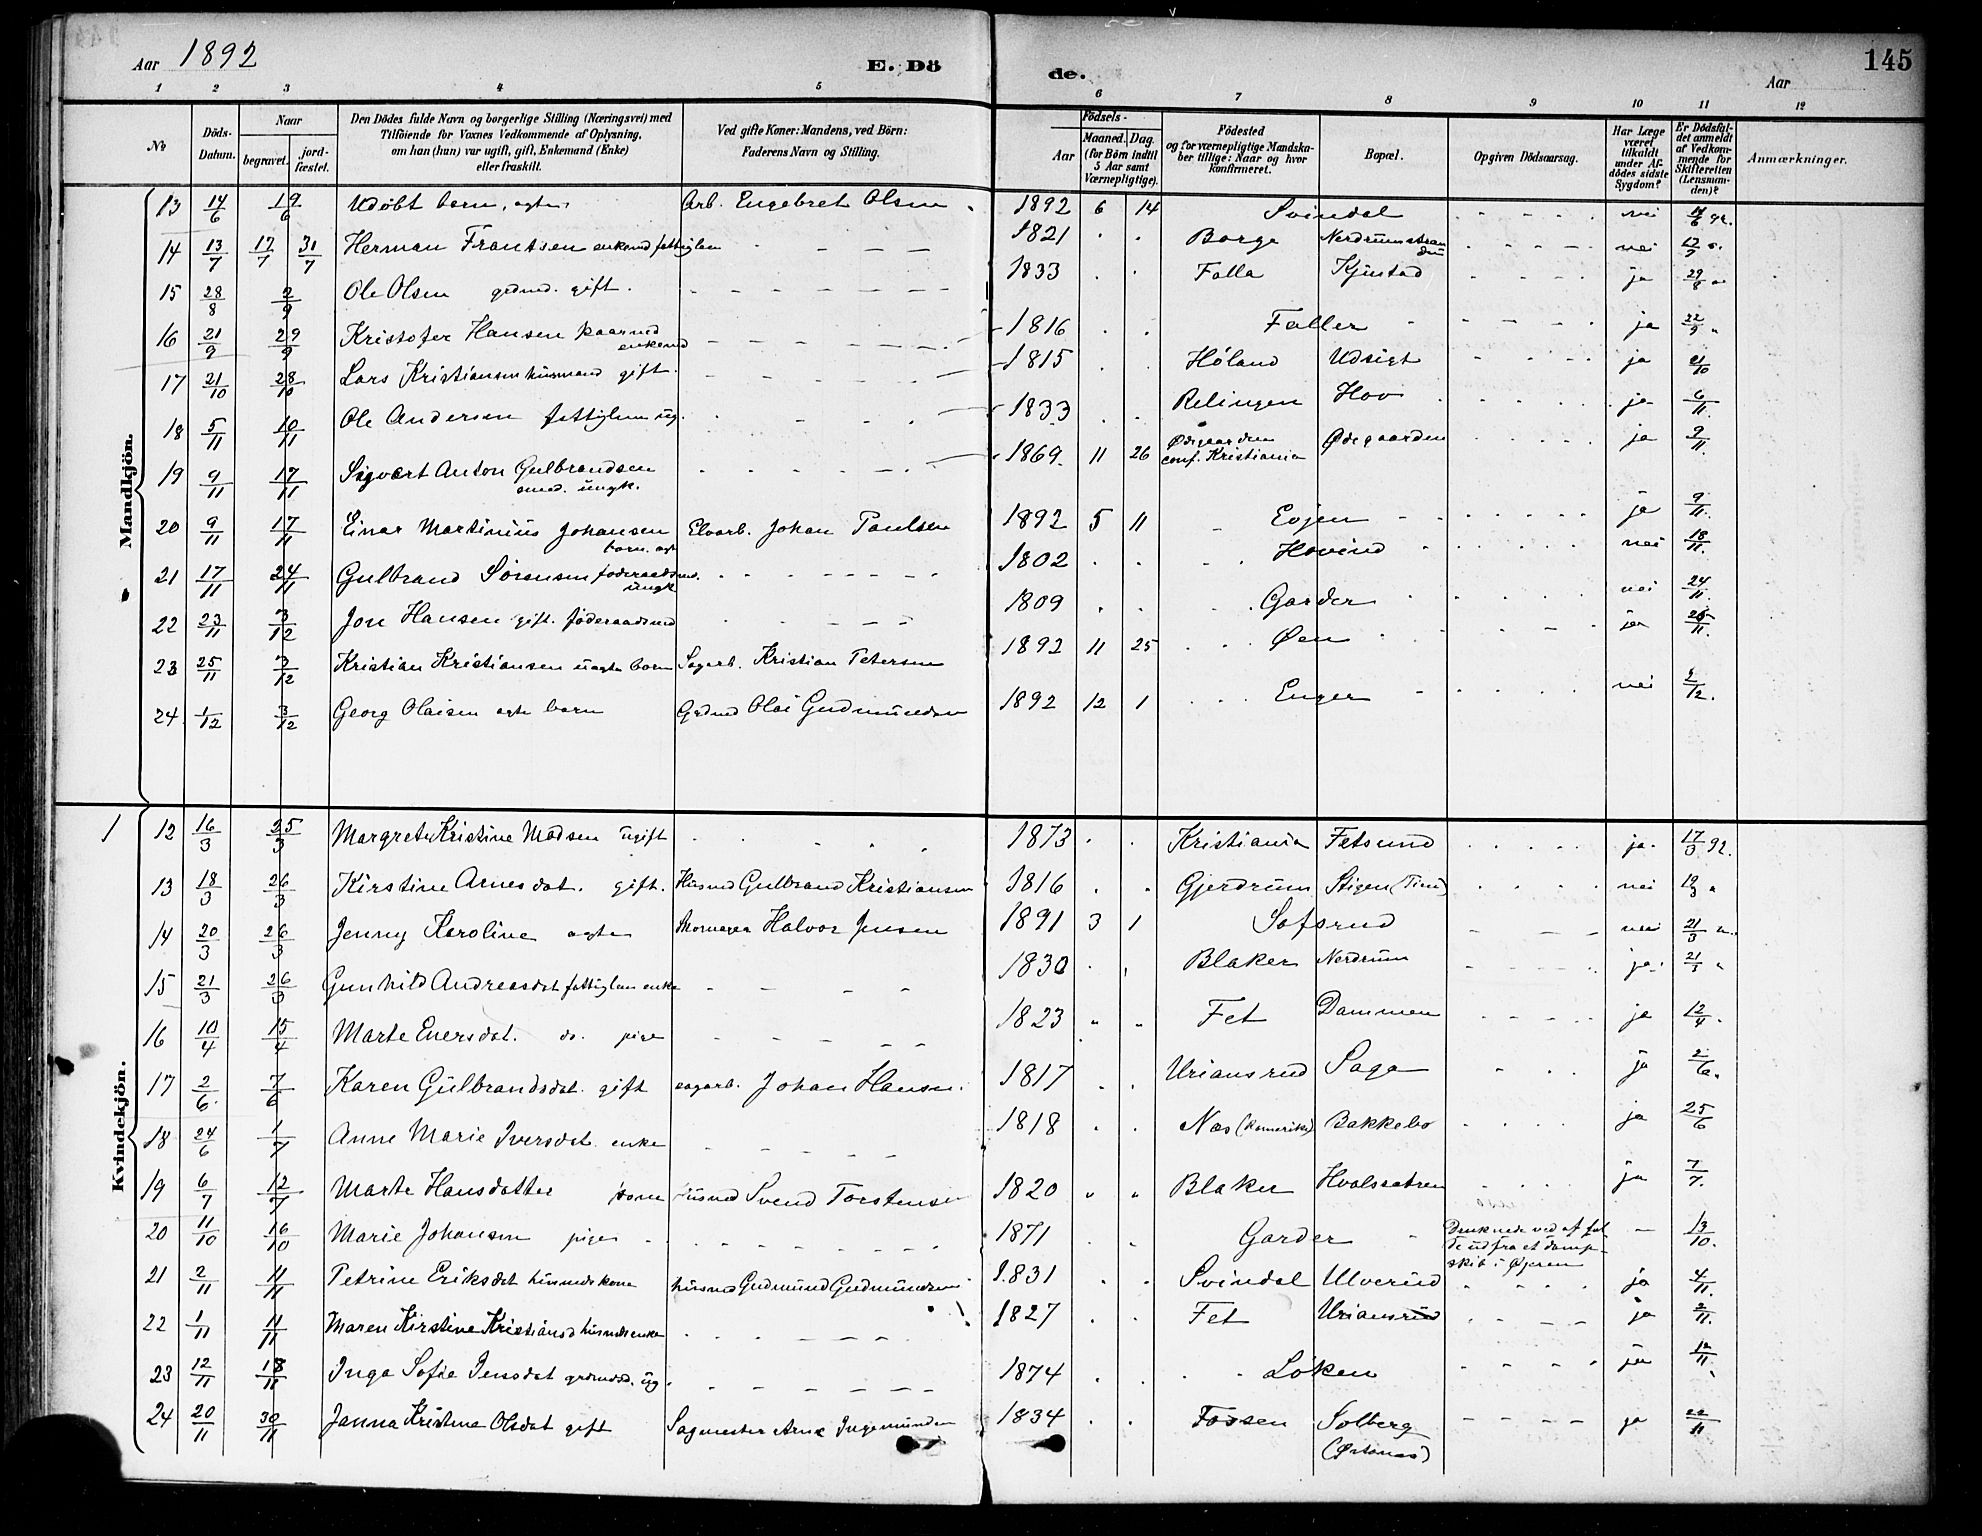 Aar 1892 E. Dö de. Aar 145
1 2 3 4 5 6 7 8 9 10 11 12
No Döds-Datum. Naar begravet. jord-fæstet. Den Dödes fulde Navn og borgerlige Stilling (Næringsvei) med Tilföiende for Voxnes Vedkommende af Oplysning, om han (hun) var ugift, gift, Enkemand (Enke) eller fraskilt. Ved gifte Koner: Mandens, ved Börn: Faderens Navn og Stilling. Födsels- Aar Maaned. Dag. (for Börn indtil 5 Aar samt Værnepligtige). Födested og for værnepligtige Mandskaber tillige: Naar og hvor konfirmeret. Bopæl. Opgiven Dödsaarsag. Har Læge været tilkaldt under Afdödes sidste Sygdom? Er Dödsfaldet anmeldt af Vedkommende for Skifteretten (Lensmanden)? Anmærkninger.
Mandkjön.
13 14/6 19/6 Udöbt barn, ægte Arb. Engebret Olsen 1892 6 14 Svindal nei 92.
14 13/7 17/7 31/7 Herman Frantsen enkemd fattiglem 1821 Borge Nerdrumstranden nei
15 28/8 2/9 Ole Olsen grdmd. gift. 1833 Falla Kjustad ja 29/8
16 21/9 29/9 Kristofer Hansen kaarmd enkemd 1816 Faller ja 22/9
17 21/10 28/10 Lars Kristiansen husmand gift. 1815 Höland Udsigt ja 21/10
18 5/11 10/11 Ole Andersen fattiglem ug. 1833 Relingen Hov ja 6/11.
19 9/11 17/11 Sigvart Anton Gulbrandsen smed. ungk. 1869. 11 26 Ødegaarden conf. Kristiania Ødegaarden ja 9/11.
20 9/11 17/11 Einar Martinius Johansen barn. ægt Elvarb. Johan Paulsen 1892 5 11 Evjen ja 9/11.
21 17/11 24/11 Gulbrand Sörensen föderaadsmd. ungk 1802 Hovind nei 18/11.
22 23/11 3/12 Jon Hansen gift. föderaadsmd 1809 Garder nei 24/11.
23 25/11 3/12 Kristian Kristiansen uægte barn Sagarb. Kristian Petersen 1892 11 25 Øen ja 26/11.
24 1/12 3/12 Georg Olaisen ægte barn Grdmd Olai Gudmundsen 1892 12 1 Enger nei 2/12.
Kvindekjön.
1 12 16/3 25/3 Margrete Kristine Madsen ugift 1873 Kristiania Fetsund ja. 17/3 92.
13 18/3 26/3 Kirstine Arnesdat. gift. Husmd Gulbrand Kristiansen 1816 Gjerdrum Stigen nei 19/3
14 20/3 26/3 Jenny Karoline ægte Skomager Halvor Jensen 1891 3 1 Sofsrud nei 21/3
15 21/3 26/3 Gunhild Andreasdat fattiglem enke 1830 Blaker Nerdrum ja. 21/3
16 10/4 15/4 Marte Enersdat. do. pige 1823 Fet Dammen ja 12/4.
17 2/6. 7/6 Karen Gulbrandsdat. gift sagarb. Johan Hansen. 1817 Uriansrud Saga ja 2/6.
18 24/6 1/7 Anne Marie Iversdat. enke 1818 Næs (Romerike) Bakkebo ja 25/6
19 6/7 12/7 Marte Hansdatter kone husmd Svend Torstensen 1820 Blaker Hvalssætren ja 7/7.
20 11/10 16/10 Marie Johansen pige 1871 Garder Druknede ved at falde ud fra et dampskib i Øjeren 13/10.
21 2/11 11/11 Petrine Eriksdat husmdskone husmd Gudmund Gudmundsen 1831 Svindal Ulverud ja 4/11.
22 1/11 11/11 Maren Kirstine Kristiansd husmdsenke 1827 Fet Uriansrud ja 2/11.
23 12/11 18/11 Inga Sofie Jensdat grdmdsd. ug. 1874 Löken ja 12/11
24 20/11 30/11 Janna Kristine Olsdat gift Sagmester Arne Ingemundsen 1834 Fossen Solberg ja 22/11